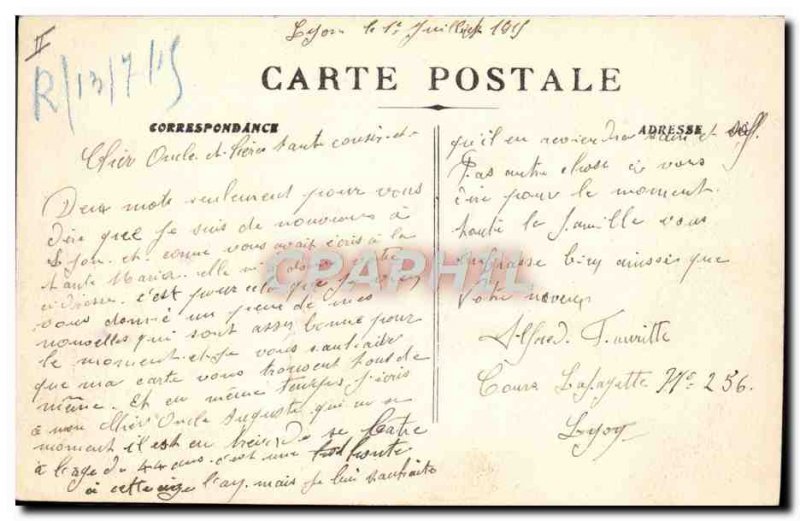 Lyon le 1r Juilliet 1915
II
R/13/7/15
CARTE POSTALE
CORRESPONDANCE
ADRESSE
Chèr Oncle et chère tante cousin et
Deux mots seulement pour vous
dire que je suis de nouveaux à
Lyon et come vous avait écris à la
tante Maria elle m'a donné votre
adresse c'est pour cela que je
vous donné un peux de mes
nouvelles qui sont assez bonne pour
le moment et je vous souhaite
que ma carte vous trouvent tous de
même. Et en même temps j'écris
a mon Chèr Oncle Auguste qui en se
moment il est en train de se batre
à l'age de 44 ans c'est une honte
à cette age l'ay. mais je lui souhaite
qu'il en revien et
Pas autre chose à vous
dire pour le moment
toute la famille vous
embrasse bien ainsie que
votre neveux
Alfred
Cours Lafayette No 256.
Lyon
CAPHIL